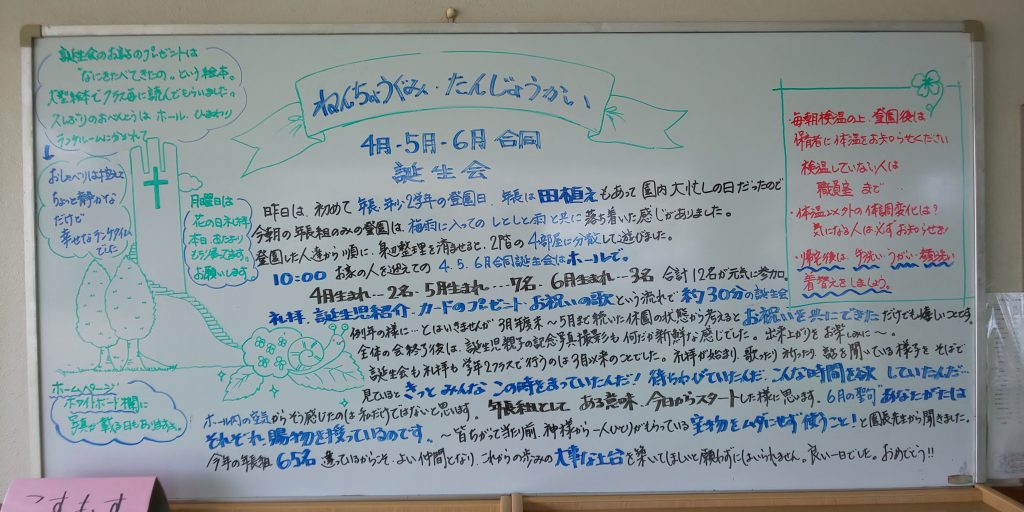 誕生会のお話のプレゼントは
"なにをたべてきたの"。という絵本。
大型絵本でクラス毎に読んでもらいました。
久しぶりのおべんとうは ホール ひまわり
ランチルームに分かれて
おしゃべりは控えて
ちょっと静かな
だけど
幸せなランチタイム
でした
月曜日は
花の日礼拝
本日、おたより
お願いします。
ねんちょうぐみ・たんじょうかい
4月・5月・6月 合同
誕生会
昨日は、初めて 年長、年少 2学年の登園日、年長は 田植えもあって園内大忙しの日だったので
今朝の年長組のみの登園は、梅雨に入っての しとしと雨と共に落ち着いた感じがありました。
登園した人達から順に、身辺整理を済ませると、2階の 4部屋に分散して遊びました。
10:00 お家の人を迎えての 4.5.6月合同誕生会はホールで。
4月生まれ…2名、5月生まれ…7名、6月生まれ…3名 合計12名が元気に参加。
礼拝、誕生児紹介・カードのプレゼント・お祝いの歌という流れで 約30分の誕生会
例年の様に…とはいきませんが 3月後末〜5月まで続いた休園の状態から考えるとお祝いを共にできただけでも嬉しいことです。
全体の会終了後は、誕生児親子の記念写真撮影も何だか新鮮な感じでした。出来上がりをお楽しみに〜。
誕生会も礼拝も学年2クラスで行うのは3月以来のことでした。礼拝が始まり、歌ったり祈ったり 話を聞いている様子を そばで
見ていると きっと みんな この時をまっていたんだ! 待ちわびていたんだ こんな時間を欲していたんだ…
ホール内の空気からそう感じたのは私だけではないと思います。 年長組として ある意味、今日からスタートした様に思います。6月の聖句 あなたがたは
それぞれ 賜物を授っているのです。 〜皆ちがって当たり前、神様から一人ひとりがもらっている宝物をムダにせず 使うこと!と園長先生から聞きました。
今年の年長組 65名 違っているからこそ、よい仲間となり、これからの歩みの 大事な土台を築いてほしいと願わずにはいられません。良い一日でした。おめでとう!!
・毎朝検温の上、登園後は
保育者に体温をお知らせください
検温していない人は
職員室まで
・体温以外の体調変化は?
気になる人は必ずお知らせを!
・帰宅後は、手洗い・うがい・顔洗い
着替えをしましょう。
ホームページ
ホワイトボード欄に
写真が載る日もあります。
こすもす